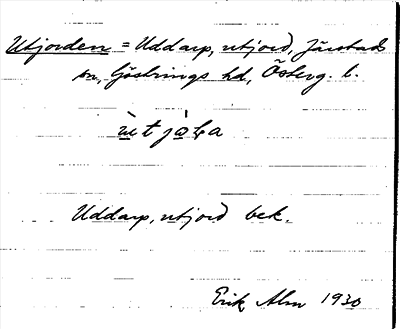 Utjorden = Uddarp, utjord, Järstads
sn, Göstrings hd, Österg. l.
Uddarp, utjord bek.
Erik Alm 1930